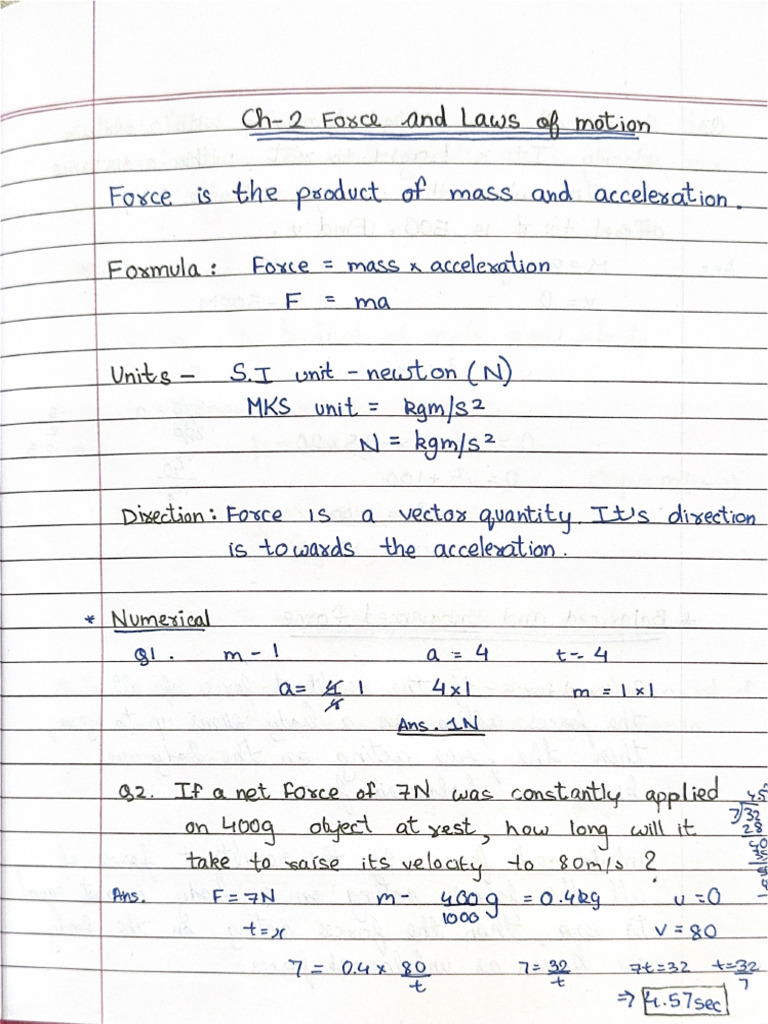 Ch-2 Force and Laws of motion
Force is the product of mass and acceleration.
Formula: Force = mass x acceleration
F = ma
Units - S.I unit - newton (N)
MKS unit = kgm/s2
N = kgm/s2
Direction: Force is a vector quantity. It's direction
is towards the acceleration.
* Numerical
Q1. m - 1 a = 4 t - 4
a = 4/4 1 4x1 m = 1x1
Ans. 1N
Q2. If a net force of 7N was constantly applied
on 400g object at rest, how long will it
take to raise its velocity to 80m/s?
45
7)32
28
40
Ans. F = 7N m - 400/1000 g = 0.4kg u = 0
t = x v = 80
7 = 0.4 x 80/t 7 = 32/t 7t = 32 t = 32/7
⇒ 4.57sec